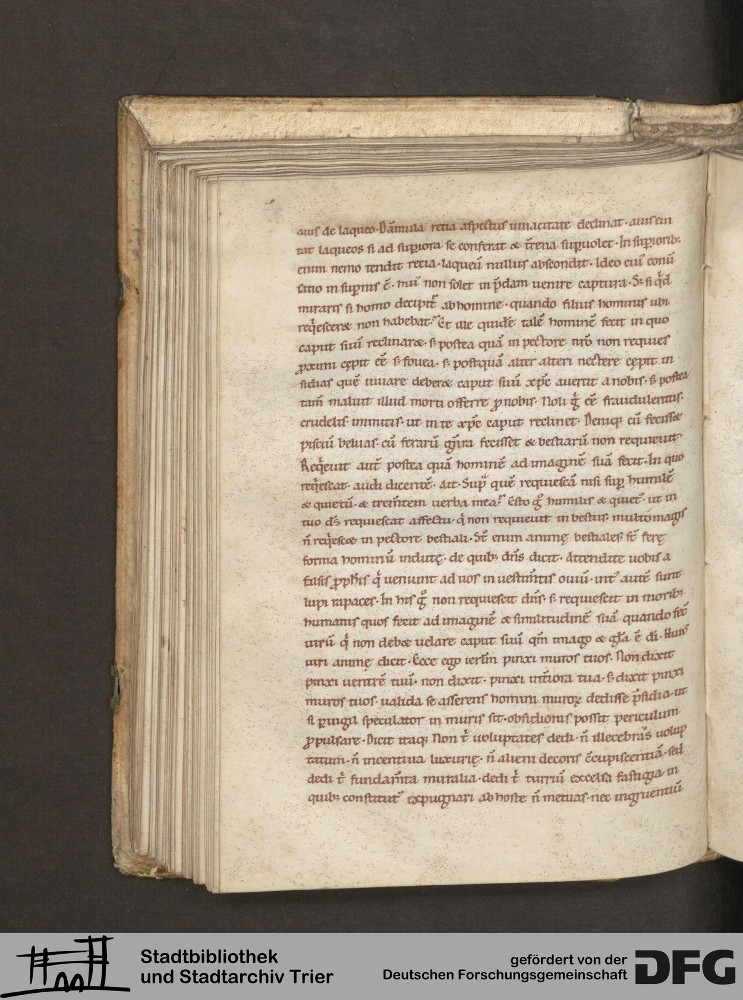 auis de laqueo· Dāmula retia aspectus uiuacitate declinat· auis eui
tat laqueos si ad supiora se conferat & t̄rena supuolet· In supiorib;
enim nemo tendit retia· laqueū nullus abscondit· Ideo cui
sitio in supnis ē· non solet in p̄dam uenire captura· S; qd
miraris si homo decipit̄ ab homine· quando filius hominis ubi
reqꝰesceret non habebat? Et ille quidē talē hominē fecit in quo
caput suū reclinaret· s; postea quā in pectore nr̄o non requies
ꝓximi cępit cē s; fouea· s; postquā alter alteri nectere cępit in
sidias quē iuuare deberet caput suū xp̄c auertit a nobis· s; postea
tam̄ maluit illud morti offerre ꝓ nobis· Noli g̊ ēē fraudulentus·
crudelis immitis· ut in te xp̄c caput reclinet· Deniq; cū fecisset
pisciū beluas· cū ferarū gn̄ra fecisset & bestiarū non requieuit·
Reqꝰeuit aut̄ postea quā hominē ad imaginē suā fecit· In quo
reqꝰescat· audi dicentē· ait· Sup quē requiescā nisi sup humilē
& quietū· & trem̄tem uerba mea? Esto g̊ humilis & quiet᷒· ut in
tuo dś requiescat affectu· q̊ non requieuit in bestiis multo magis
n̄ reqꝰescet in pectore bestiali· St̄ enim animę bestiales st̄ ferę
forma hominū indutę· de quib; dn̄s dicit· Attendite uobis a
falsis ꝓph̄is q̊ ueniunt ad uos in uestim̄tis ouiū· int᷒ autē sunt
lupi rapaces· In his g̊ non requiescit dn̄s· s; requiescit in morib;
humanis quos fecit ad imaginē & similitudinē suā quando fec̄
uirū q̊ non debet uelare caput suū qm̄ imago & gl̄a ē dī· Huius
uiri animę dicit· Ecce ego ierl̄m pinxi muros tuos· Non dixit
pinxi uentrē tuū· non dixit· pinxi int̄iora tua· s; dixit pinxi
muros tuos· ualida se asserens homini muroꝝ dedisse p̄sidia· ut
si puigil speculator in muris sit· obsidionis possit periculum
ꝓpulsare· Dicit itaq; Non t̄ uoluptates dedi· n̄ illecebras uolup
tatum· n̄ incentiua luxurię· n̄ alieni decoris c̄cupiscentiā· sed
dedi t̄ fundam̄ta muralia· dedi t̄ turriū excelsa fastigia in
quib; constitut᷒ expugnari ab hoste n̄ metuas· nec ingruentiū
Stadtbibliothek
und Stadtarchiv Trier
gefördert von der
Deutschen Forschungsgemeinschaft
DFG